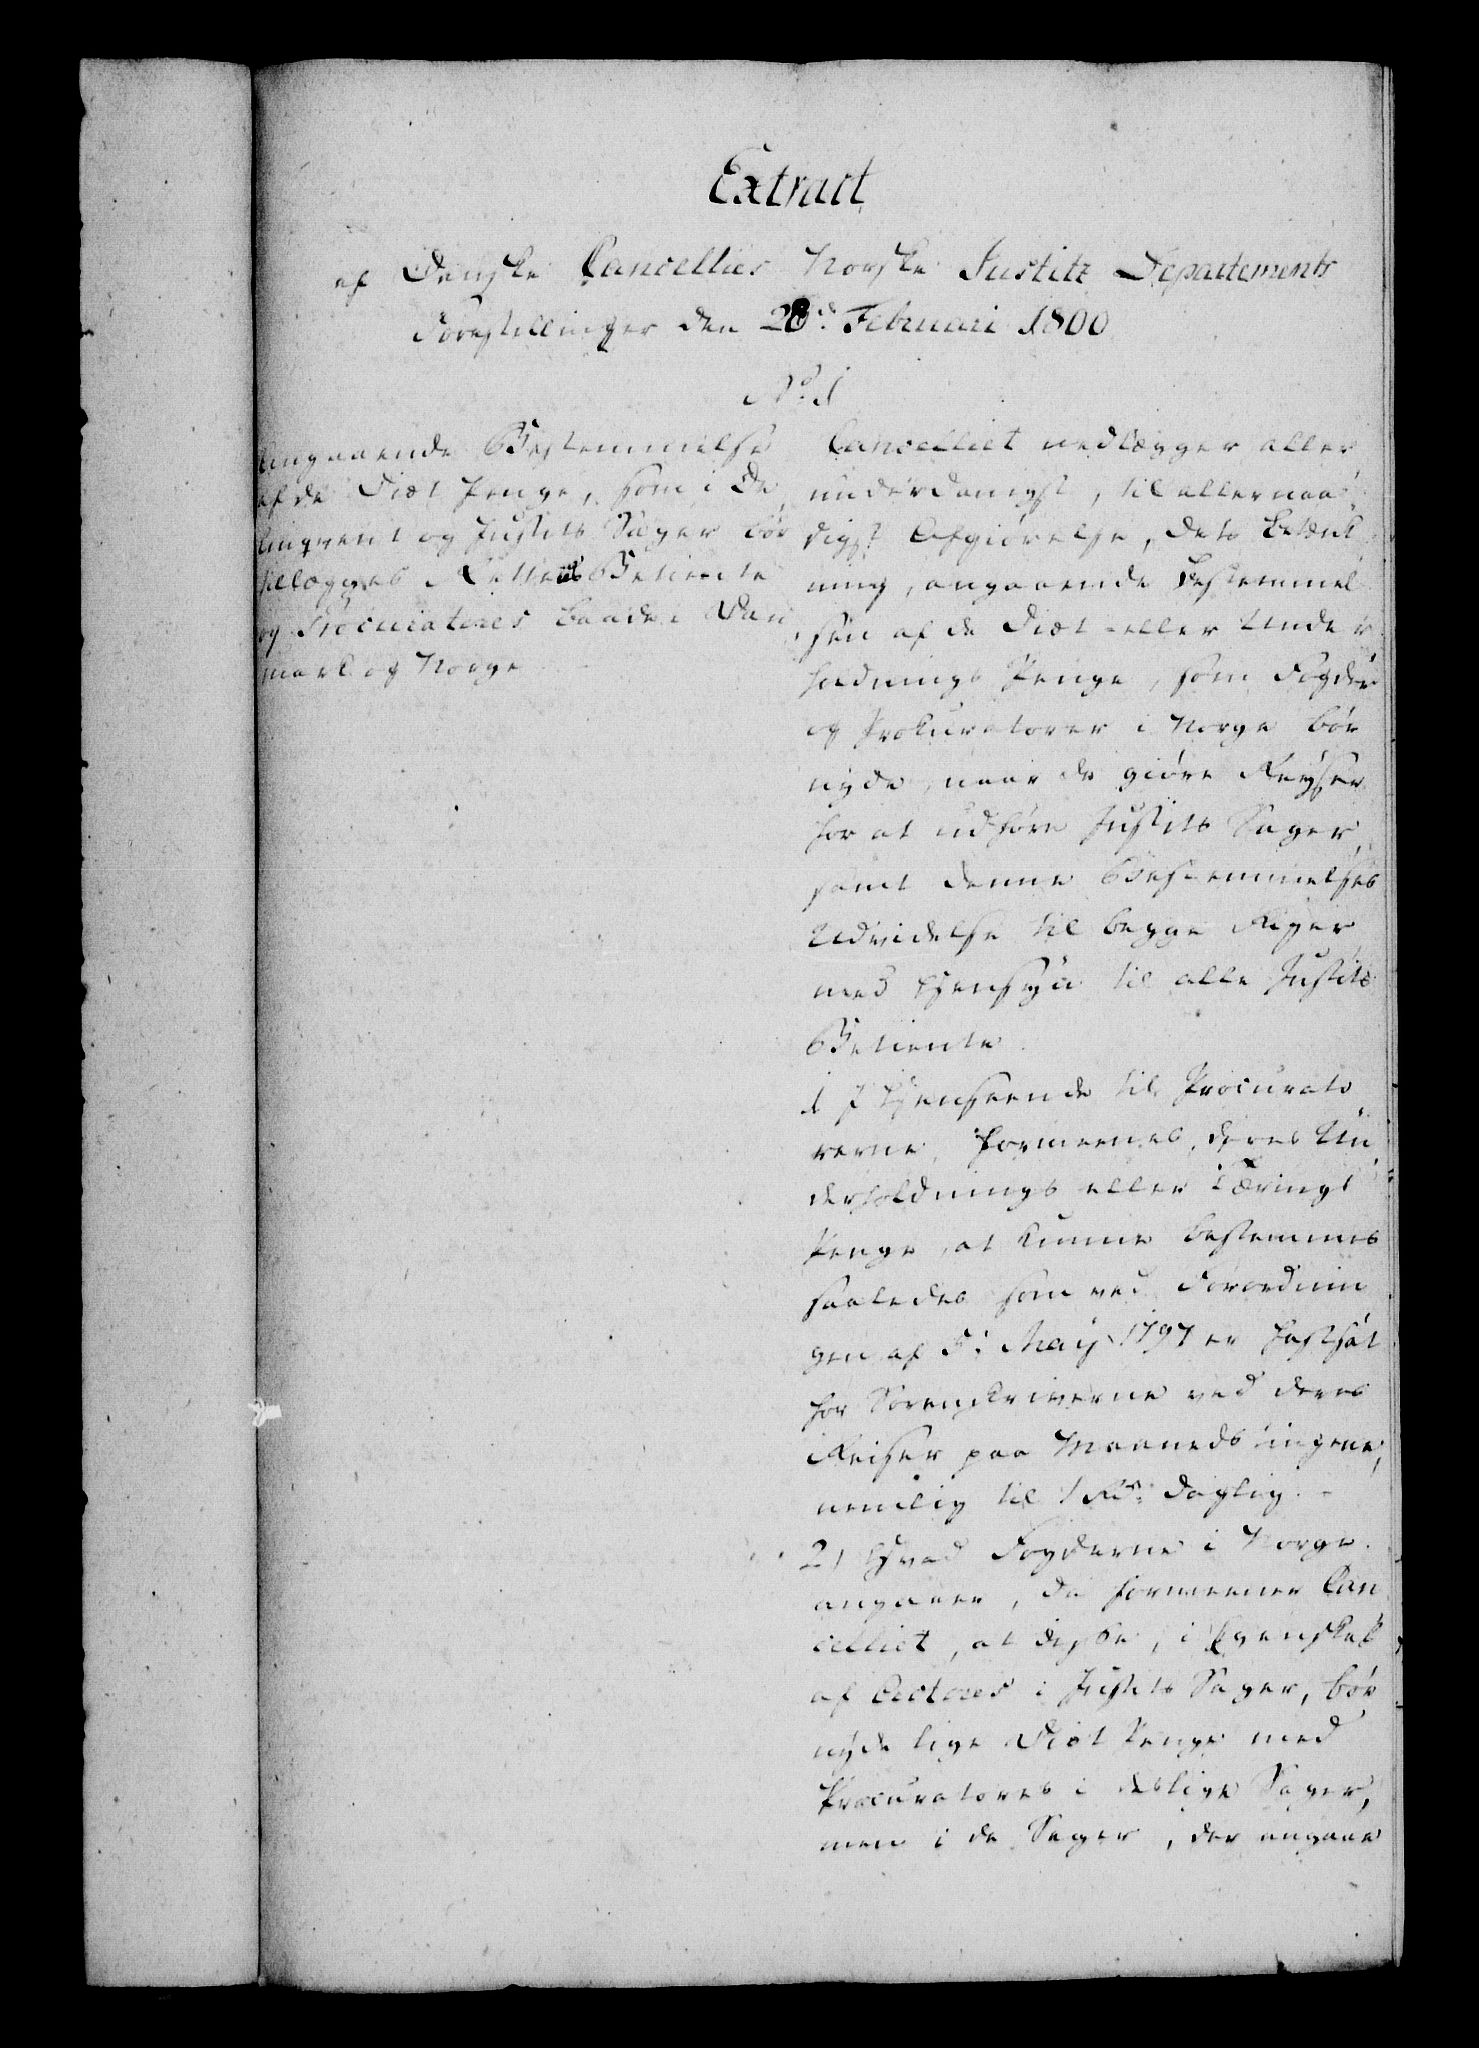 Extract
af Danske Cancellies Norske Justitz Departements
Forestillinger den 28de Februari 1800
No. 1
Angaaende Bestemmelse
af de Diæt Penge, som i De
linqvent og Justits Sager bør
tillægges Rettens Betiente
og Procuratores baade i Dan
mark og Norge
Cancelliet nedlægger aller
underdanigst, til allernaa
digst Afgiörelse, dets Betænk
ning, angaaende Bestemmel
sen af de Diæt- eller Under
holdnings Penge, som Fogder
og Prokuratorer i Norge bör
nyde, naar de giöre Reyser
for at udföre Justits Sager,
samt denne Bestemmelses
Udvidelse til begge Riger
med Hensyn til alle Justits
Betiente.
1 I Henseende til Procurato
rerne, formeenes, deres Un
derholdnings eller Tærings
Penge, at kunne bestemmes
saaledes som ved Forordnin
gen af 5. May 1797 er fastsat
for Sorenskriverne ved deres
Reiser paa Maaneds Tingene,
nemlig til 1 Rdr. daglig. -
2, Hvad Fogderne i Norge
angaaer, da formeener Can
celliet, at disse, i Egenskab
af Actores i Justits Sager, bör
nyde lige Diæt Penge med
Procuratores i deslige Sager,
men i de Sager, der angaae